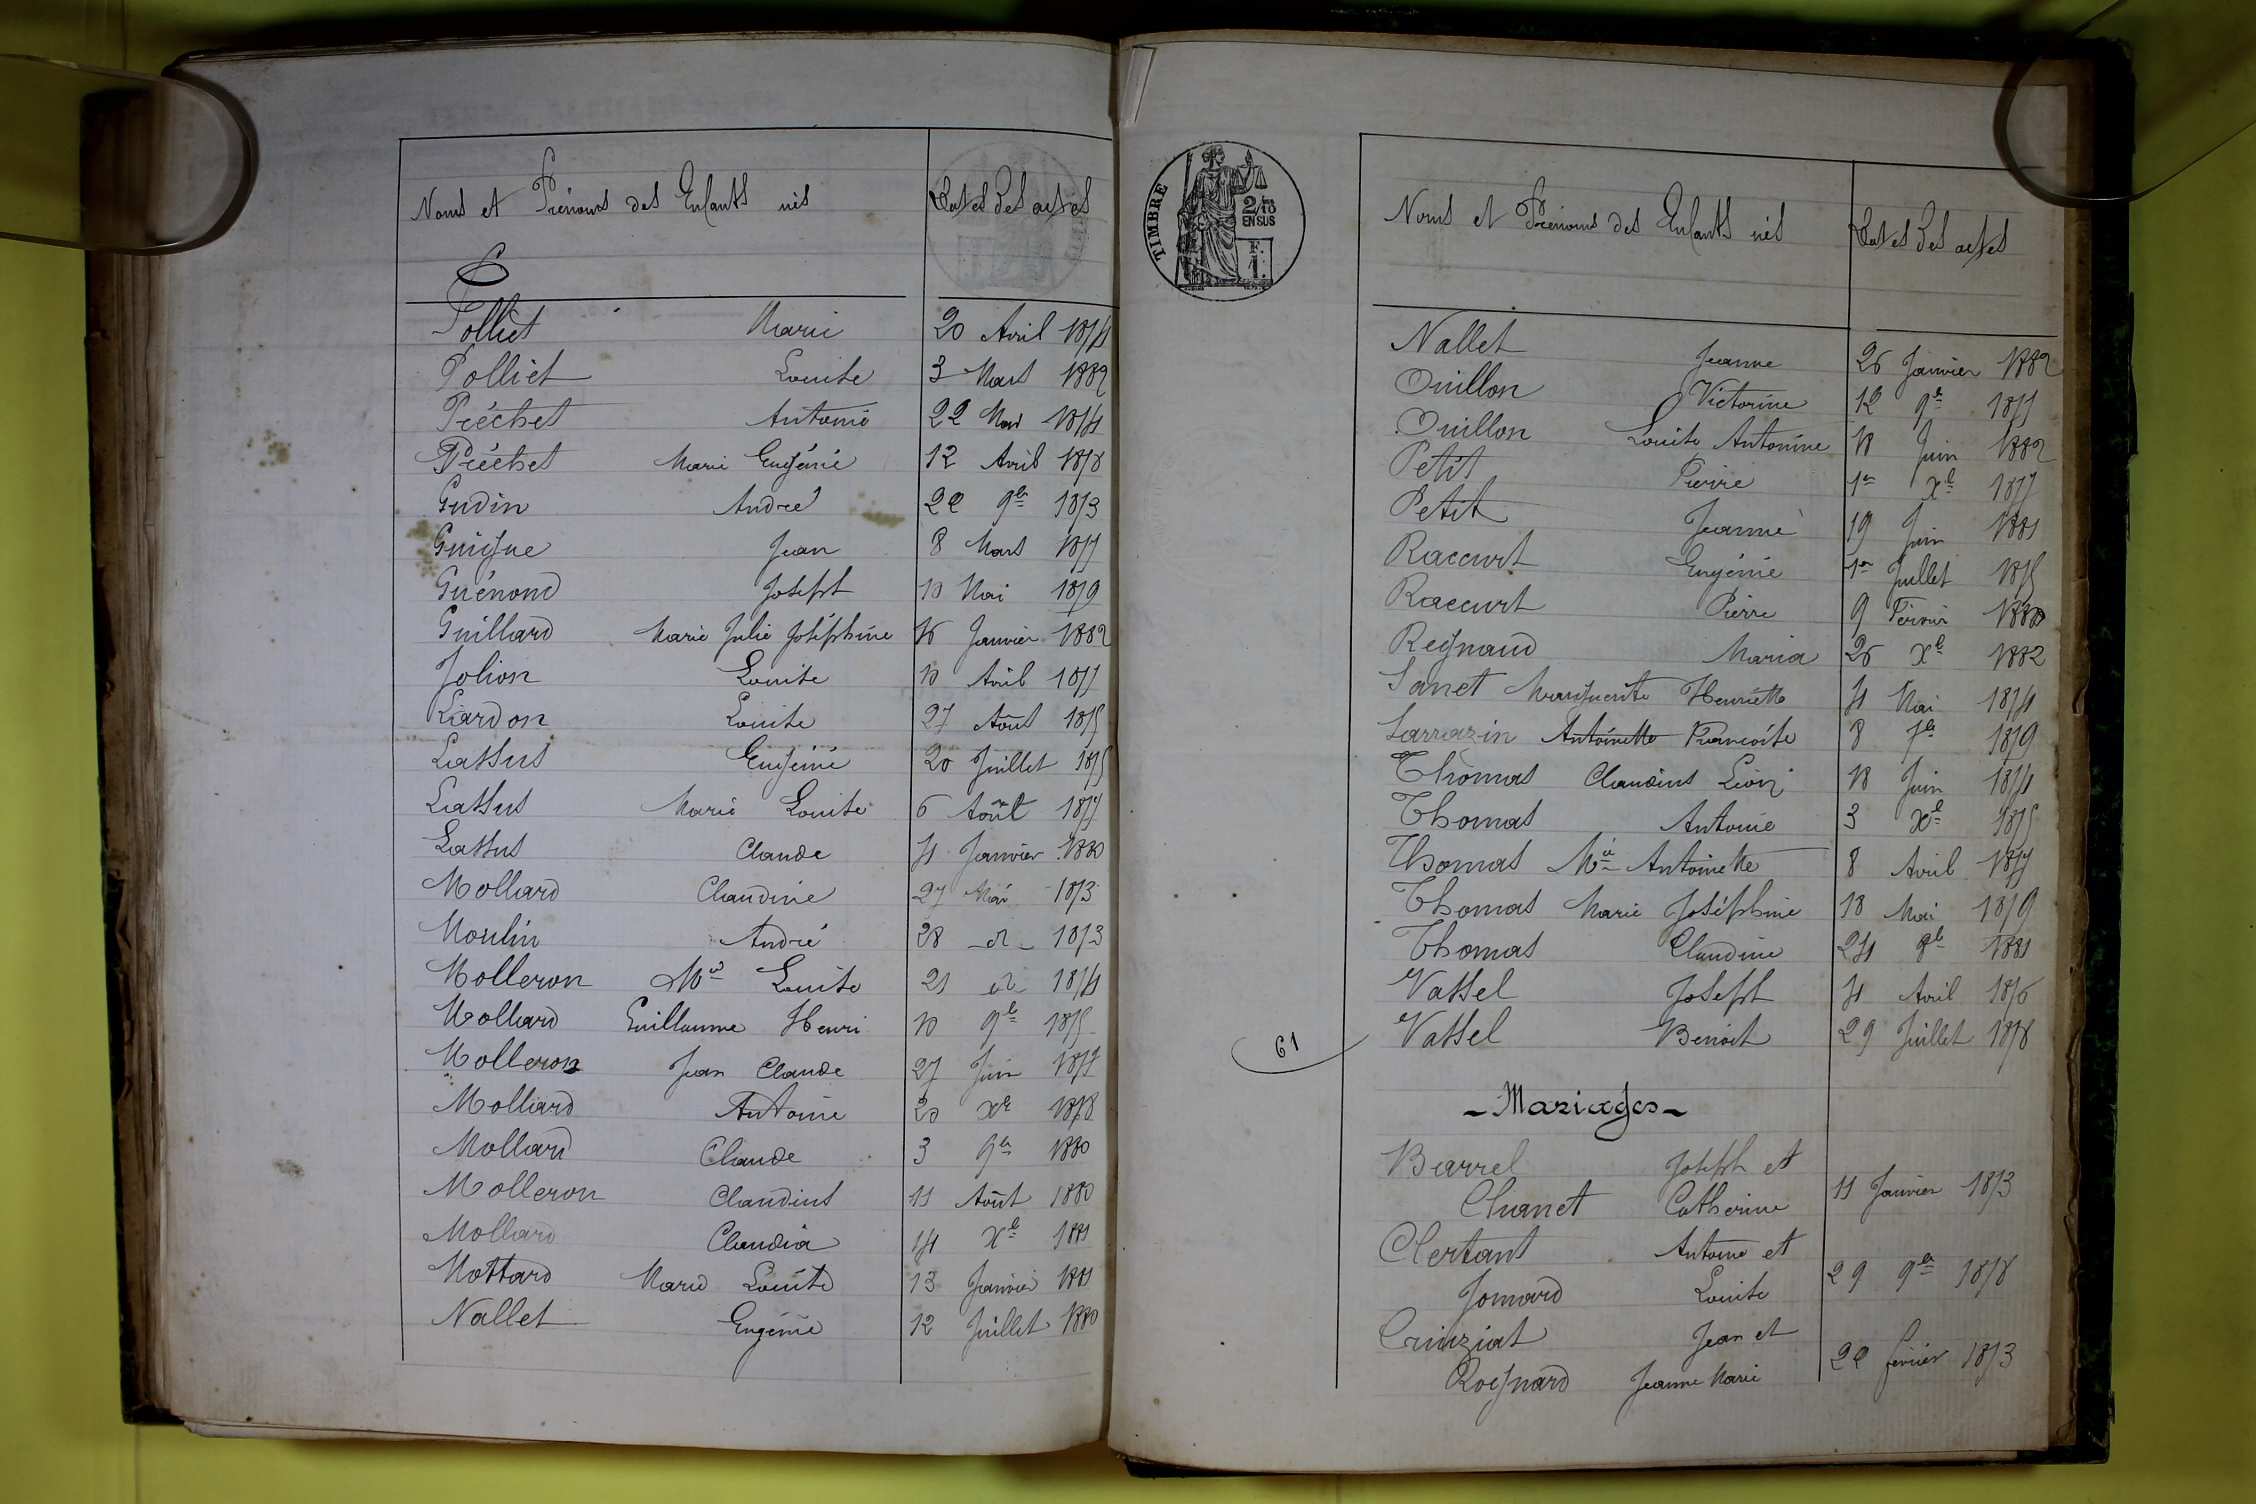 Noms et Prénoms des Enfants nés Dates des actes
Polliet Marie 20 Avril 1874
Polliet Louise 3 Mars 1882
Préchet Antoine 22 Mars 1874
Préchet Marie Eugénie 12 Avril 1878
Gudin André 22 9bre 1873
Guigue Jean 8 Mars 1877
Guénond Joseph 10 Mai 1879
Guillard Marie Julie Joséphine 16 Janvier 1882
Jolion Louise 10 Avril 1877
Liardon Louise 27 Août 1875
Lassus Eugénie 20 Juillet 1875
Lassus Marie Louise 6 Août 1877
Lassus Claude 4 Janvier 1880
Mollard Claudine 27 Mai 1873
Moulin André 28 -d- 1873
Molleron Mie Louise 21 d 1874
Mollard Guillaume Henri 10 9b 1875
Molleron Jean Claude 27 Juin 1877
Mollard Antoine 20 Xr 1878
Mollard Claude 3 9br 1880
Molleron Claudius 11 Août 1880
Mollard Claudia 14 Xb 1881
Mottard Marie Louise 13 Janvier 1881
Nallet Eugénie 12 Juillet 1880
TIMBRE
2/10
EN SUS
F.
1.
Noms et Prénoms des Enfants nés Dates des actes
Nallet Jeanne 26 Janvier 1882
Ouillon Victorine 12 9b 1877
Ouillon Louise Antonine 18 Juin 1882
Petit Pierre 1er Xb 1877
Petit Jeanne 19 Juin 1881
Raccurt Eugénie 1er Juillet 1875
Raccurt Pierre 9 Février 1880
Regnaud Maria 26 Xb 1882
Sanet Marguerite Henriette 4 Mai 1874
Sarrazin Antoinette Françoise 8 7b 1879
Thomas Claudius Léon 18 Juin 1874
Thomas Antoine 3 Xb 1875
Thomas Mie Antoinette 8 Avril 1877
Thomas Marie Joséphine 18 Mai 1879
Thomas Claudine 24 8b 1881
Vassel Joseph 4 Avril 1876
Vassel Benoit 29 Juillet 1878
61
- Mariages -
Barrel Joseph et
Chanet Catherine 11 Janvier 1873
Clertant Antoine et
Jomard Louise 29 9br 1878
Cruiziat Jean et
Roignard Jeanne Marie 22 février 1873